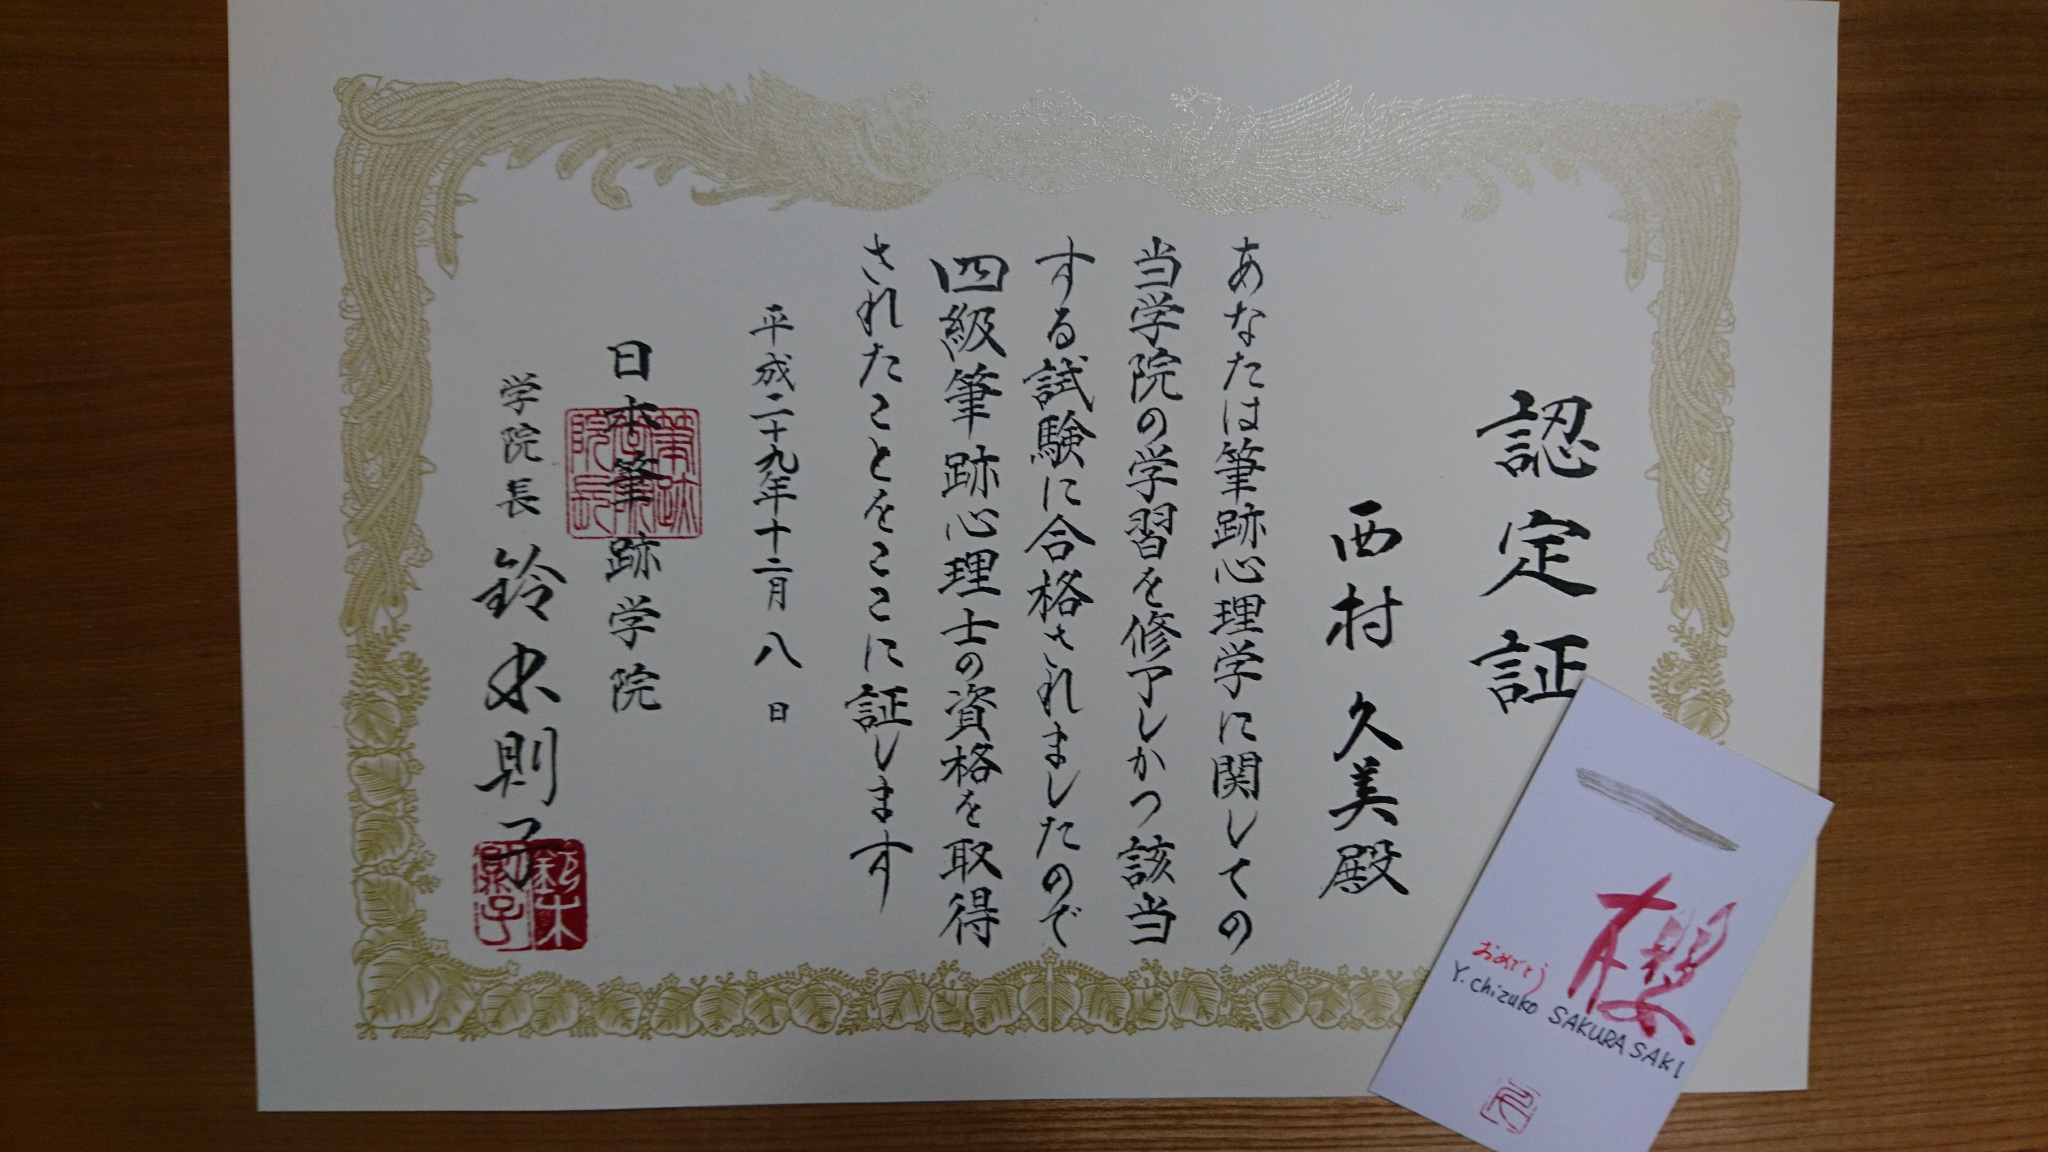 認定証
西村久美殿
あなたは筆跡心理学に関しての
当学院の学習を修了しかつ該当
する試験に合格されましたので
四級筆跡心理士の資格を取得
されたことをここに証します
平成二十九年十二月八日
日本筆跡学院
学院長 鈴木則子
櫻
おめでとう
Y.chizuko SAKURASAKI